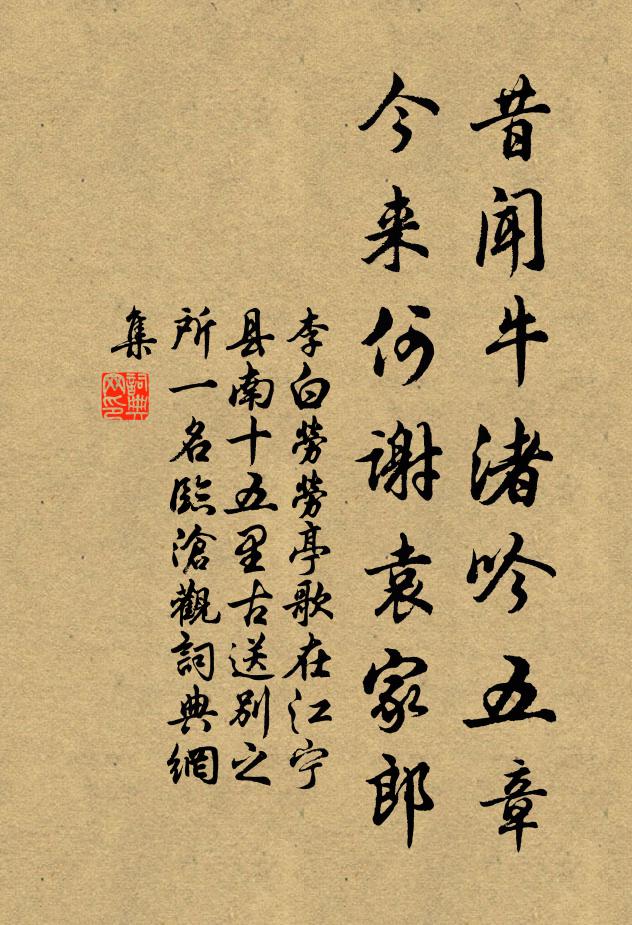 昔闻牛渚吟五章
今来何谢袁家郎
李白劳劳亭歌在江宁
县南十五里古送别之
所一名临沧觀詞典網
集
詞典網印